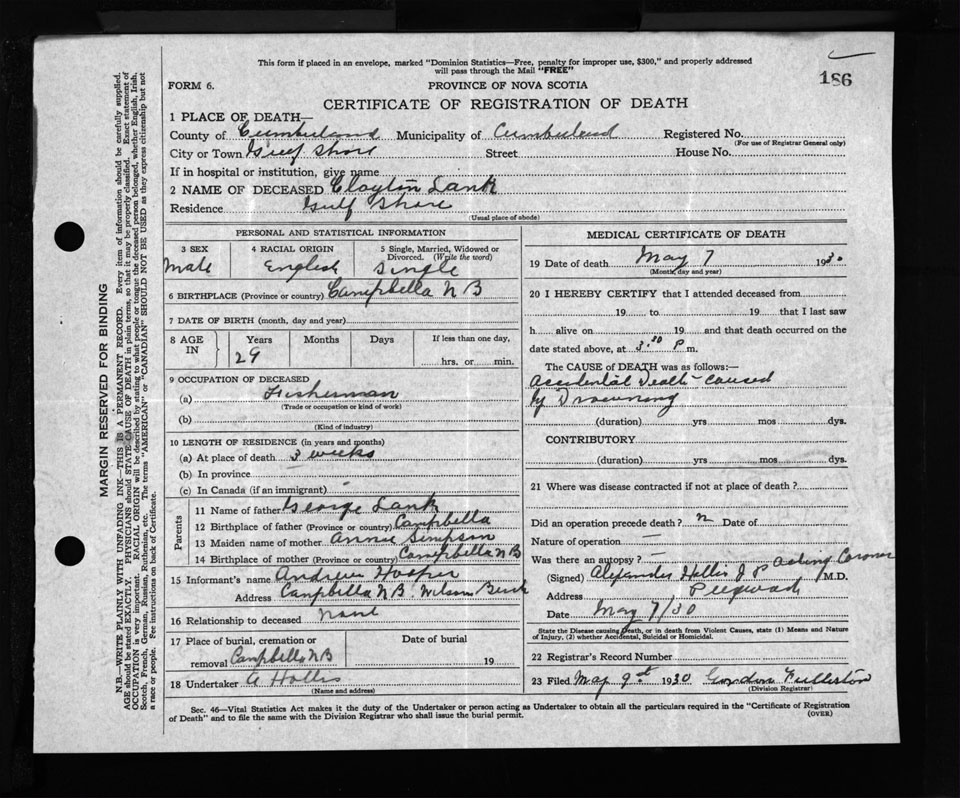 This form if placed in an envelope, marked "Dominion Statistics—Free, penalty for improper use, $300," and properly addressed
will pass through the Mail "FREE"
186
FORM 6.
PROVINCE OF NOVA SCOTIA
CERTIFICATE OF REGISTRATION OF DEATH
1 PLACE OF DEATH—
County of Cumberland Municipality of Cumberland Registered No.
(For use of Registrar General only)
City or Town Gulf Shore Street House No.
If in hospital or institution, give name
2 NAME OF DECEASED Clayton Lank
Residence Gulf Shore
(Usual place of abode)
PERSONAL AND STATISTICAL INFORMATION
3 SEX 4 RACIAL ORIGIN 5 Single, Married, Widowed or
Divorced. (Write the word)
Male English Single
6 BIRTHPLACE (Province or country) Campbella N B
7 DATE OF BIRTH (month, day and year)
8 AGE IN Years Months Days If less than one day,
29 hrs. or min.
9 OCCUPATION OF DECEASED
(a) Fisherman
(Trade or occupation or kind of work)
(b)
(Kind of industry)
10 LENGTH OF RESIDENCE (in years and months)
(a) At place of death 3 weeks
(b) In province
(c) In Canada (if an immigrant)
Parents
11 Name of father George Lank
12 Birthplace of father (Province or country) Campbella
13 Maiden name of mother Annie Simpson
14 Birthplace of mother (Province or country) Campbella N B
15 Informant's name Andrew
Address Campbella N B. Wilson
16 Relationship to deceased None
17 Place of burial, cremation or
removal Campbella N B
Date of burial
19
18 Undertaker A Hollis
(Name and address)
MEDICAL CERTIFICATE OF DEATH
19 Date of death May 7 1930
(Month, day and year)
20 I HEREBY CERTIFY that I attended deceased from
19 to 19 that I last saw
h alive on 19 and that death occurred on
date stated above, at 3.30 P m.
The CAUSE of DEATH was as follows:—
Accidental Death caused
by Drowning
(duration) yrs mos dys.
CONTRIBUTORY
(duration) yrs mos dys.
21 Where was disease contracted if not at place of death?
Did an operation precede death? n Date of
Nature of operation —
Was there an autopsy? —
(Signed) Alexander Hollis J P Acting Coroner M.D.
Address Pugwash
Date May 7/30
State the Disease causing Death, or in death from Violent Causes, state (1) Means and Nature
of Injury, (2) whether Accidental, Suicidal or Homicidal.
22 Registrar's Record Number
23 Filed May 9th 1930 Gordon Fullerton
(Division Registrar)
Sec. 46—Vital Statistics Act makes it the duty of the Undertaker or person acting as Undertaker to obtain all the particulars required in the "Certificate of Registration
of Death" and to file the same with the Division Registrar who shall issue the burial permit.
(OVER)
MARGIN RESERVED FOR BINDING
N.B.—WRITE PLAINLY WITH UNFADING INK—THIS IS A PERMANENT RECORD. Every item of information should be carefully supplied.
AGE should be stated EXACTLY. PHYSICIANS should STATE CAUSE OF DEATH in plain terms, so that it may be properly classified. Exact statement of
OCCUPATION is very important. RACIAL ORIGIN will be described by stating to what people or tongue the deceased person belonged, whether English, Irish,
Scotch, French, German, Russian, Ruthenian, etc. The terms "AMERICAN" or "CANADIAN" SHOULD NOT BE USED as they express citizenship but not
a race or people. See instructions on back of Certificate.